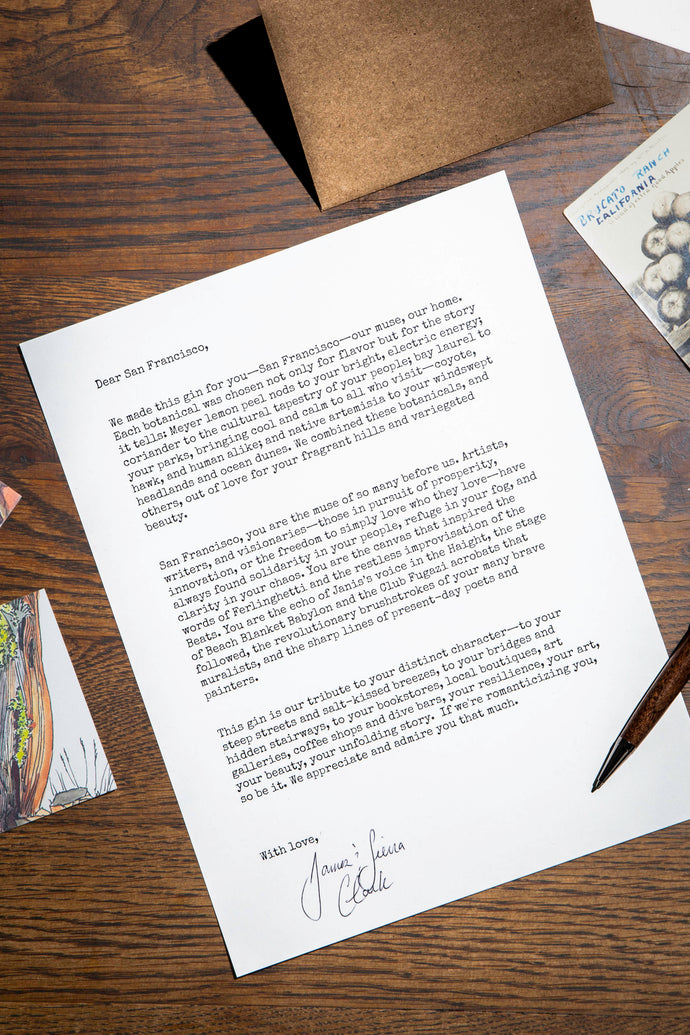 BRICATO RANCH
CALIFORNIA
Dear San Francisco,
We made this gin for you—San Francisco—our muse, our home.
Each botanical was chosen not only for flavor but for the story
it tells: Meyer lemon peel nods to your bright, electric energy;
coriander to the cultural tapestry of your people; bay laurel to
your parks, bringing cool and calm to all who visit—coyote,
hawk, and human alike; and native artemisia to your windswept
headlands and ocean dunes. We combined these botanicals, and
others, out of love for your fragrant hills and variegated
beauty.
San Francisco, you are the muse of so many before us. Artists,
writers, and visionaries—those in pursuit of prosperity,
innovation, or the freedom to simply love who they love—have
always found solidarity in your people, refuge in your fog, and
clarity in your chaos. You are the canvas that inspired the
words of Ferlinghetti and the restless improvisation of the
Beats. You are the echo of Janis's voice in the Haight, the stage
of Beach Blanket Babylon and the Club Fugazi acrobats that
followed, the revolutionary brushstrokes of your many brave
muralists, and the sharp lines of present-day poets and
painters.
This gin is our tribute to your distinct character—to your
steep streets and salt-kissed breezes, to your bridges and
hidden stairways, to your bookstores, local boutiques, art
galleries, coffee shops and dive bars, your resilience, your art,
your beauty, your unfolding story. If we're romanticizing you,
so be it. We appreciate and admire you that much.
With love,
James & Sierra
Clark